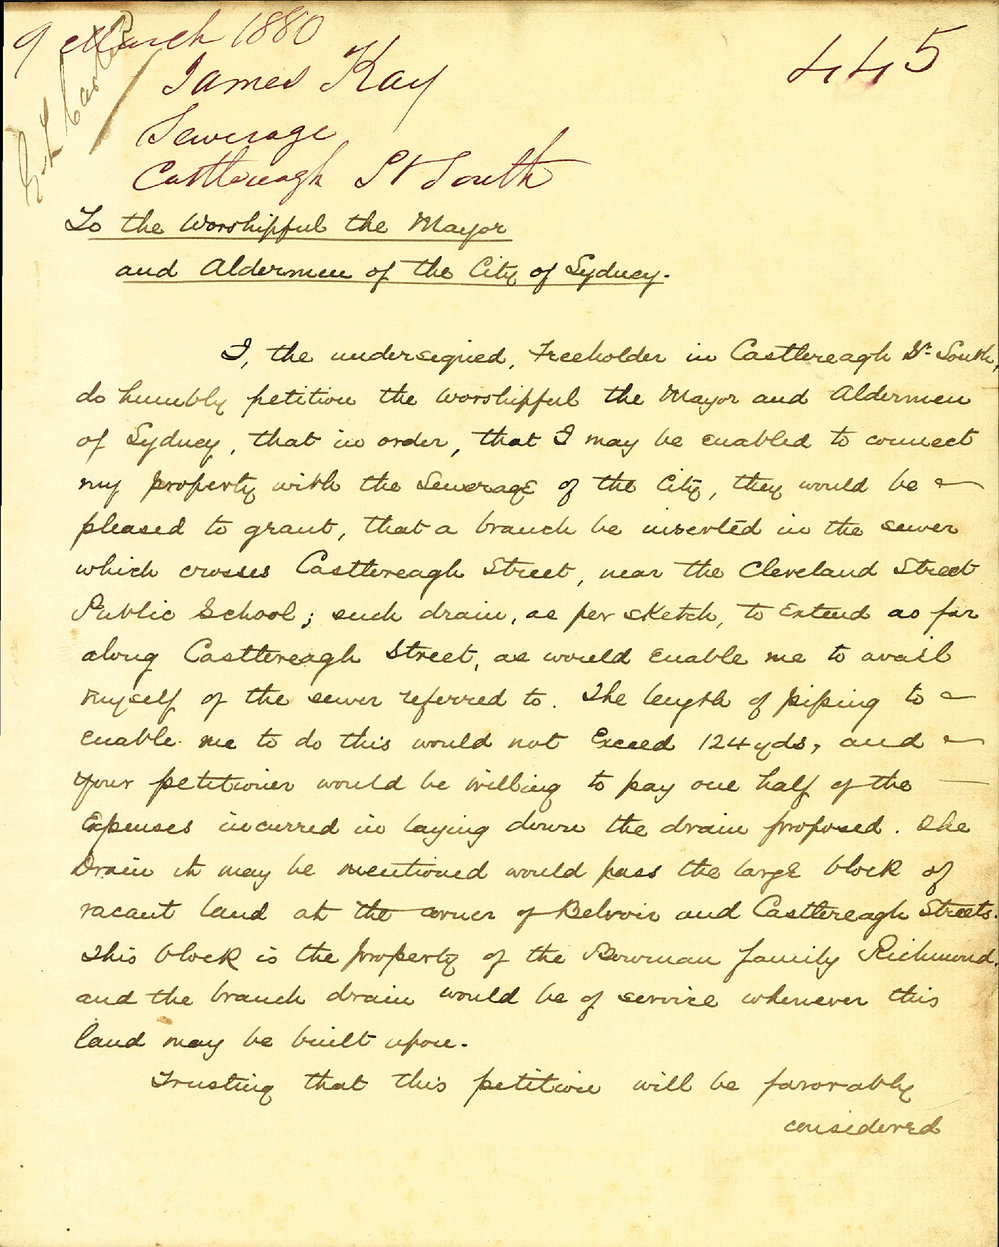 9 March 1880
445
James Kay
Sewerage
Castlereagh St South
To the Worshipful the Mayor
and Aldermen of the City of Sydney.
I, the undersigned, Freeholder in Castlereagh St. South,
do humbly petition the Worshipful the Mayor and Aldermen
of Sydney, that in order, that I may be enabled to connect
my property with the Sewerage of the City, they would be
pleased to grant, that a branch be inserted in the sewer
which crosses Castlereagh Street, near the Cleveland Street
Public School; such drain, as per sketch, to extend as far
along Castlereagh Street, as would enable me to avail
myself of the sewer referred to. The length of piping to
enable me to do this would not exceed 124 yds, and
your petitioner would be willing to pay one half of the
expenses incurred in laying down the drain proposed. The
Drain it may be mentioned would pass the large block of
vacant land at the corner of Belvoir and Castlereagh Streets.
This block is the property of the Bowman family Richmond,
and the branch drain would be of service whenever this
land may be built upon.
Trusting that this petition will be favorably
considered